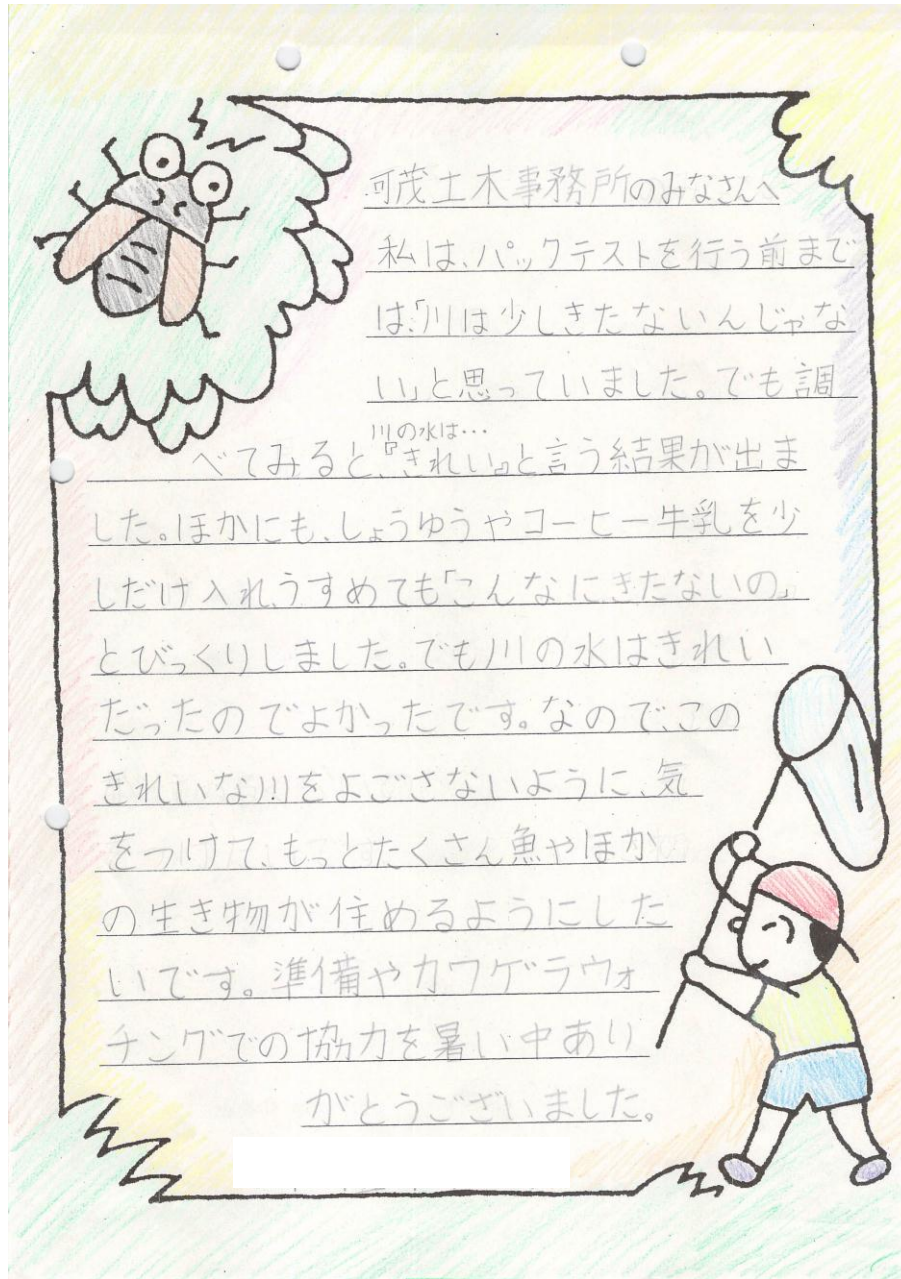 可茂土木事務所のみなさんへ
私は、パックテストを行う前まで
は、「川は少しきたないんじゃな
い」と思っていました。でも調
川の水は…
べてみると、『きれい』と言う結果が出ま
した。ほかにも、しょうゆうやコーヒー牛乳を少
しだけ入れ、うすめても「こんなにきたないの」
とびっくりしました。でも川の水はきれい
だったのでよかったです。なので、この
きれいな川をよごさないように、気
をつけて、もっとたくさん魚やほか
の生き物が住めるようにした
いです。準備やカワゲラウォ
チングでの協力を暑い中あり
がとうございました。